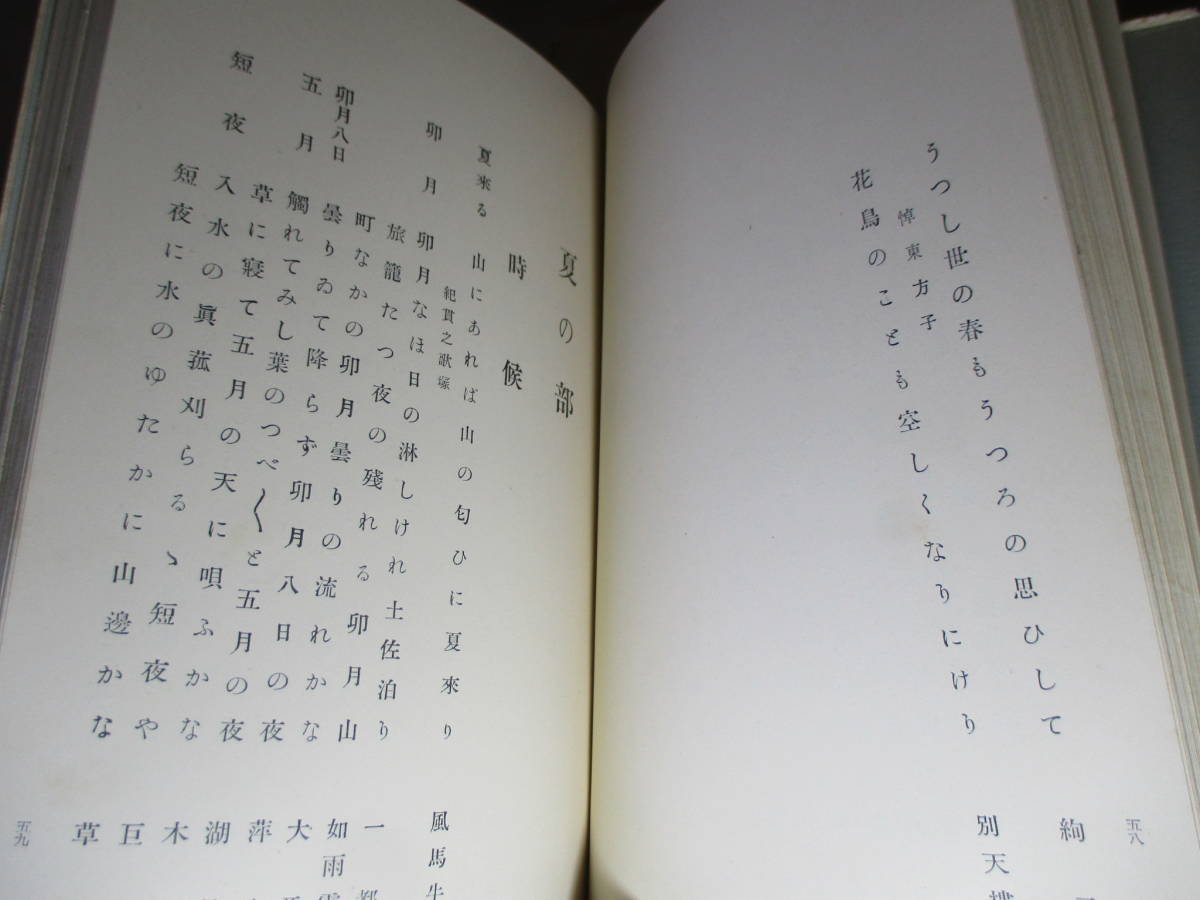 うつし世の春もうつろの思ひして 絢
悼東方子
花鳥のことも空しくなりにけり 別天樓
五八
夏の部
時候
夏來る 山にあれば山の匂ひに夏來り 風馬牛
紀貫之歌塚
卯月 卯月なほ日の淋しけれ土佐泊り 一都
旅籠たつ夜の殘れる卯月山 如雨
町なかの卯月曇りの流れかな 大
卯月八日 曇りゐて降らず卯月八日の夜 萍
五月 觸れてみし葉のつべ〱と五月の夜 湖
草に寢て五月の天に唄ふかな 木
短夜 入水の眞菰刈らるゝ短夜や 巨
短夜に水のゆたかに山邊かな 草
五九